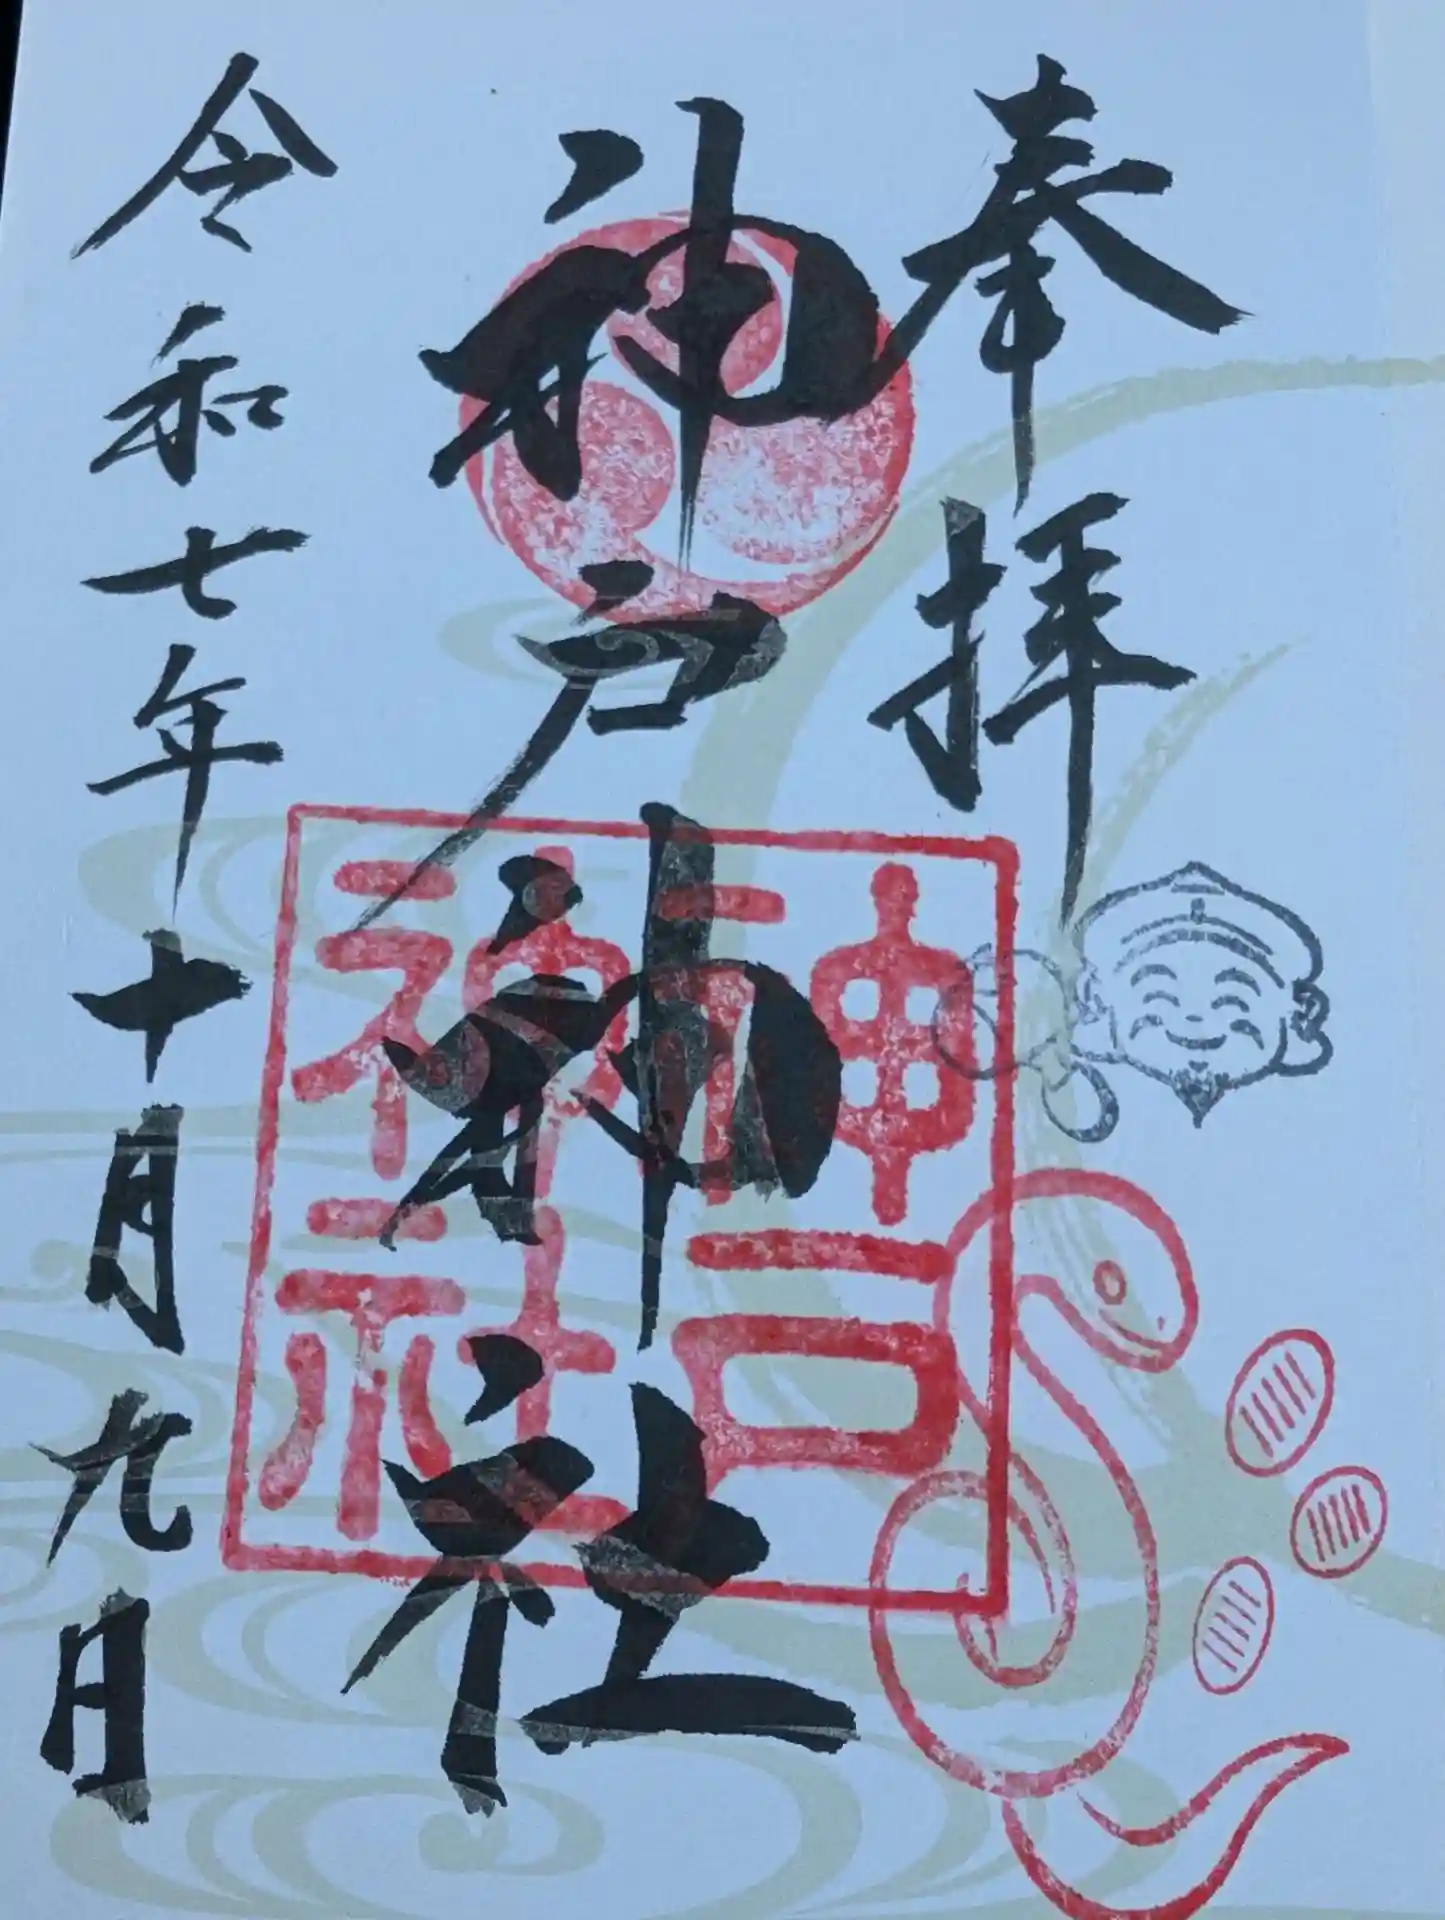 奉拝
神戸神社
神戸
神社
令和七年十月九日